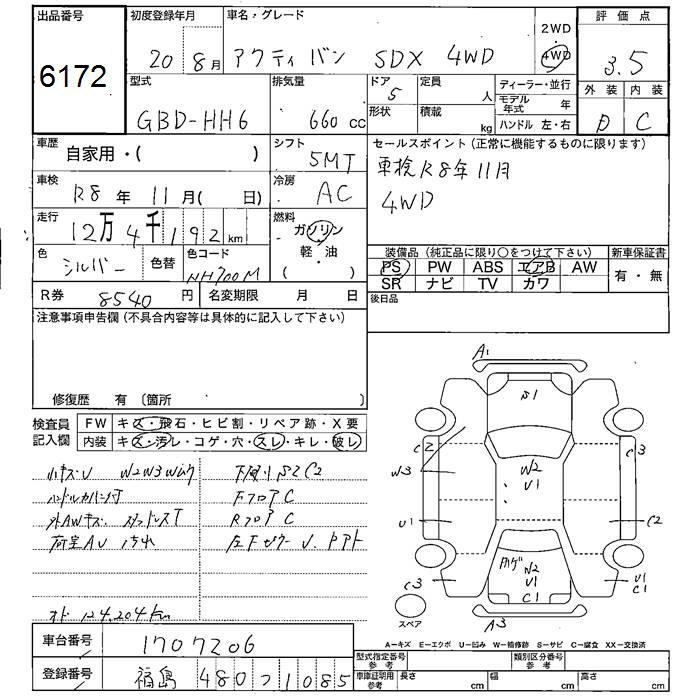 出品番号 初度登録年月 車名・グレード 2WD 評価点
6172 20 8月 アクティ バン SDX 4WD ・ 4WD 3.5
型式 排気量 ドア 定員 ディーラー・並行 外装 内装
GBD-HH6 660 cc 5 人 モデル年式 年 D C
形状 積載 kg ハンドル 左・右
車歴 自家用・( ) シフト 5MT セールスポイント(正常に機能するものに限ります)
車検 R8年 11月( 日) 冷房 AC 車検R8年11月
4WD
走行 12万4千192km 燃料 ガソリン
色 シルバー 色替 色コード NH700M 軽・油 ( )
装備品(純正品に限り○をつけて下さい) 新車保証書
PS PW ABS エアB AW 有・無
SR ナビ TV カワ
R券 8540円 名変期限 月 日 後日品
注意事項申告欄(不具合内容等は具体的に記入して下さい)
修復歴 有(箇所 )
検査員記入欄 FW キズ・飛石・ヒビ割・リペア跡・X要
内装 キズ・汚レ・コゲ・穴・スレ・キレ・破レ
小キズU W2W3 下廻りS2C2
ハンドルカバー付 FフロアC
外AWキズ スタッドレスT RフロアC
荷室AU
オド 124,204km
A1
S1
C2 C3
W3 W2 U1
U1 C2
W2
U1
C3 C1 U1 C1
スペア A3
A-キズ E-エクボ U-凹み W-補修跡 S-サビ C-腐食 XX-交換済
車台番号 1707206
型式指定番号 参考 類別区分番号 参考
登録番号 福島 480 1085
車庫証明用 参考 長さ cm 幅 cm 高さ cm